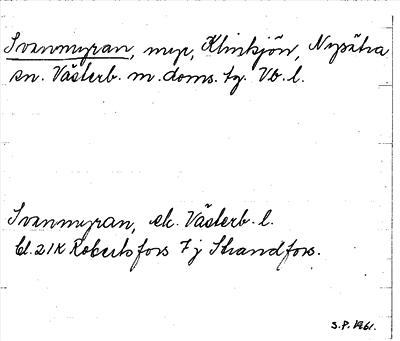 Svanmyran, myr, Klintsjön, Nysätra
sn. Västerb. m. doms. tg. Vb. l.
Svanmyran, ek. Västerb. l.
bl. 21K Robertsfors 7j Strandfors.
S.P. 1961.